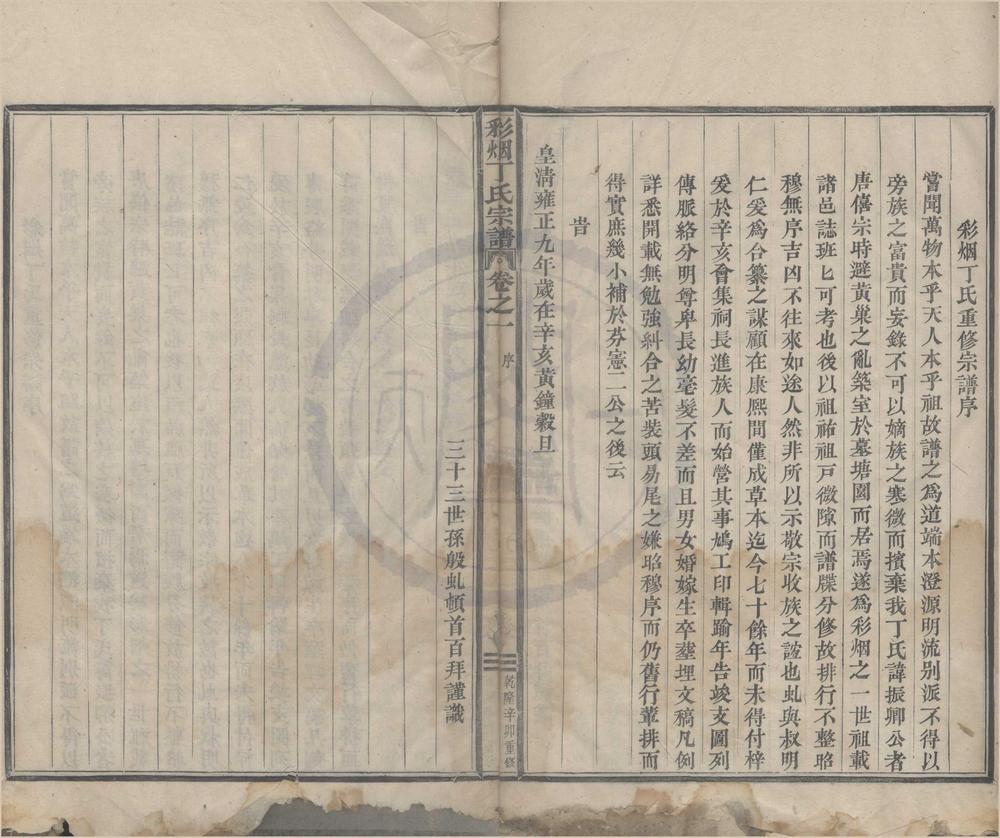 彩烟丁氏重修宗譜序
嘗聞萬物本乎天人本乎祖故譜之爲道端本澄源明流别派不得以
旁族之富貴而妄錄不可以嫡族之寒微而擯棄我丁氏諱振卿公者
唐僖宗時避黃巢之亂築室於墓塘園而居焉遂爲彩烟之一世祖載
諸邑誌班匕可考也後以祖祐祖戸微隙而譜牒分修故排行不整昭
穆無序吉凶不往來如途人然非所以示敬宗收族之誼也虬與叔明
仁爰爲合纂之謀顧在康熈間僅成草本迄今七十餘年而未得付梓
爰於辛亥會集祠長進族人而始營其事鳩工印輯踰年告竣支圖列
傳脈絡分明尊卑長幼毫髮不差而且男女婚嫁生卒塟埋文稿凡例
詳悉開載無勉強糾合之苦裝頭易尾之嫌昭穆序而仍舊行輩排而
得實庶幾小補於芬憲二公之後云
旹
皇清雍正九年歲在辛亥黃鐘穀旦
三十三世孫殷虬頓首百拜謹識
彩烟丁氏宗譜
卷之一
序
乾隆辛卯重修